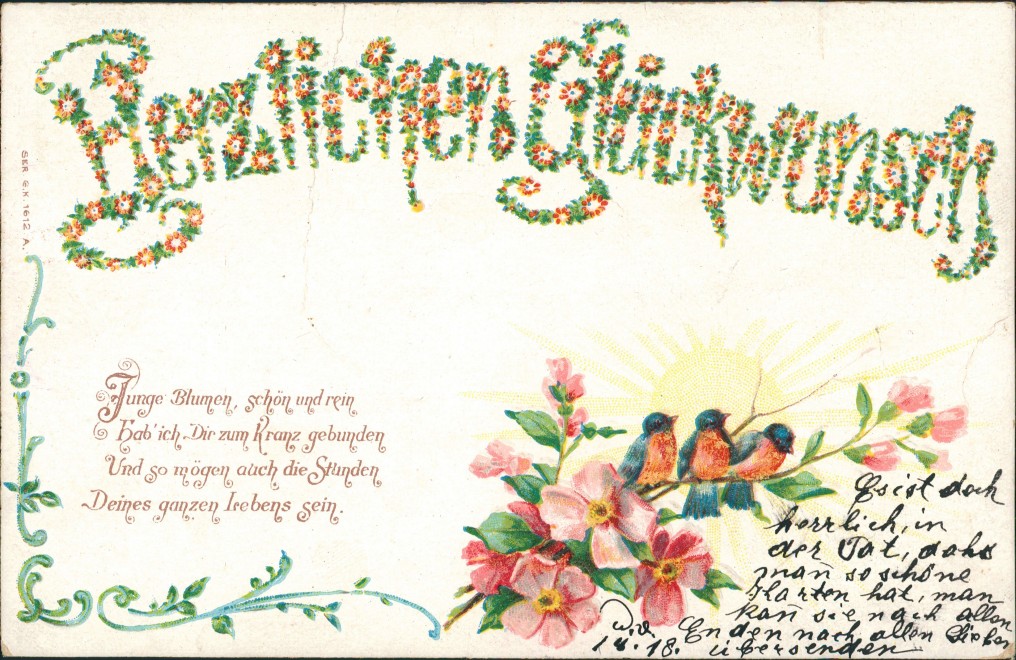 Herzlichen Glückwunsch
SER. G.K. 1612 A.
Junge Blumen, schön und rein
Hab' ich Dir zum Kranz gebunden
Und so mögen auch die Stunden
Deines ganzen Lebens sein.
Es ist doch
herrlich, in
der Tat, dahs
man̄ so schöne
Karten hat, man
kan̄ sie nach allen
Enden nach allen Lieben
übersenden